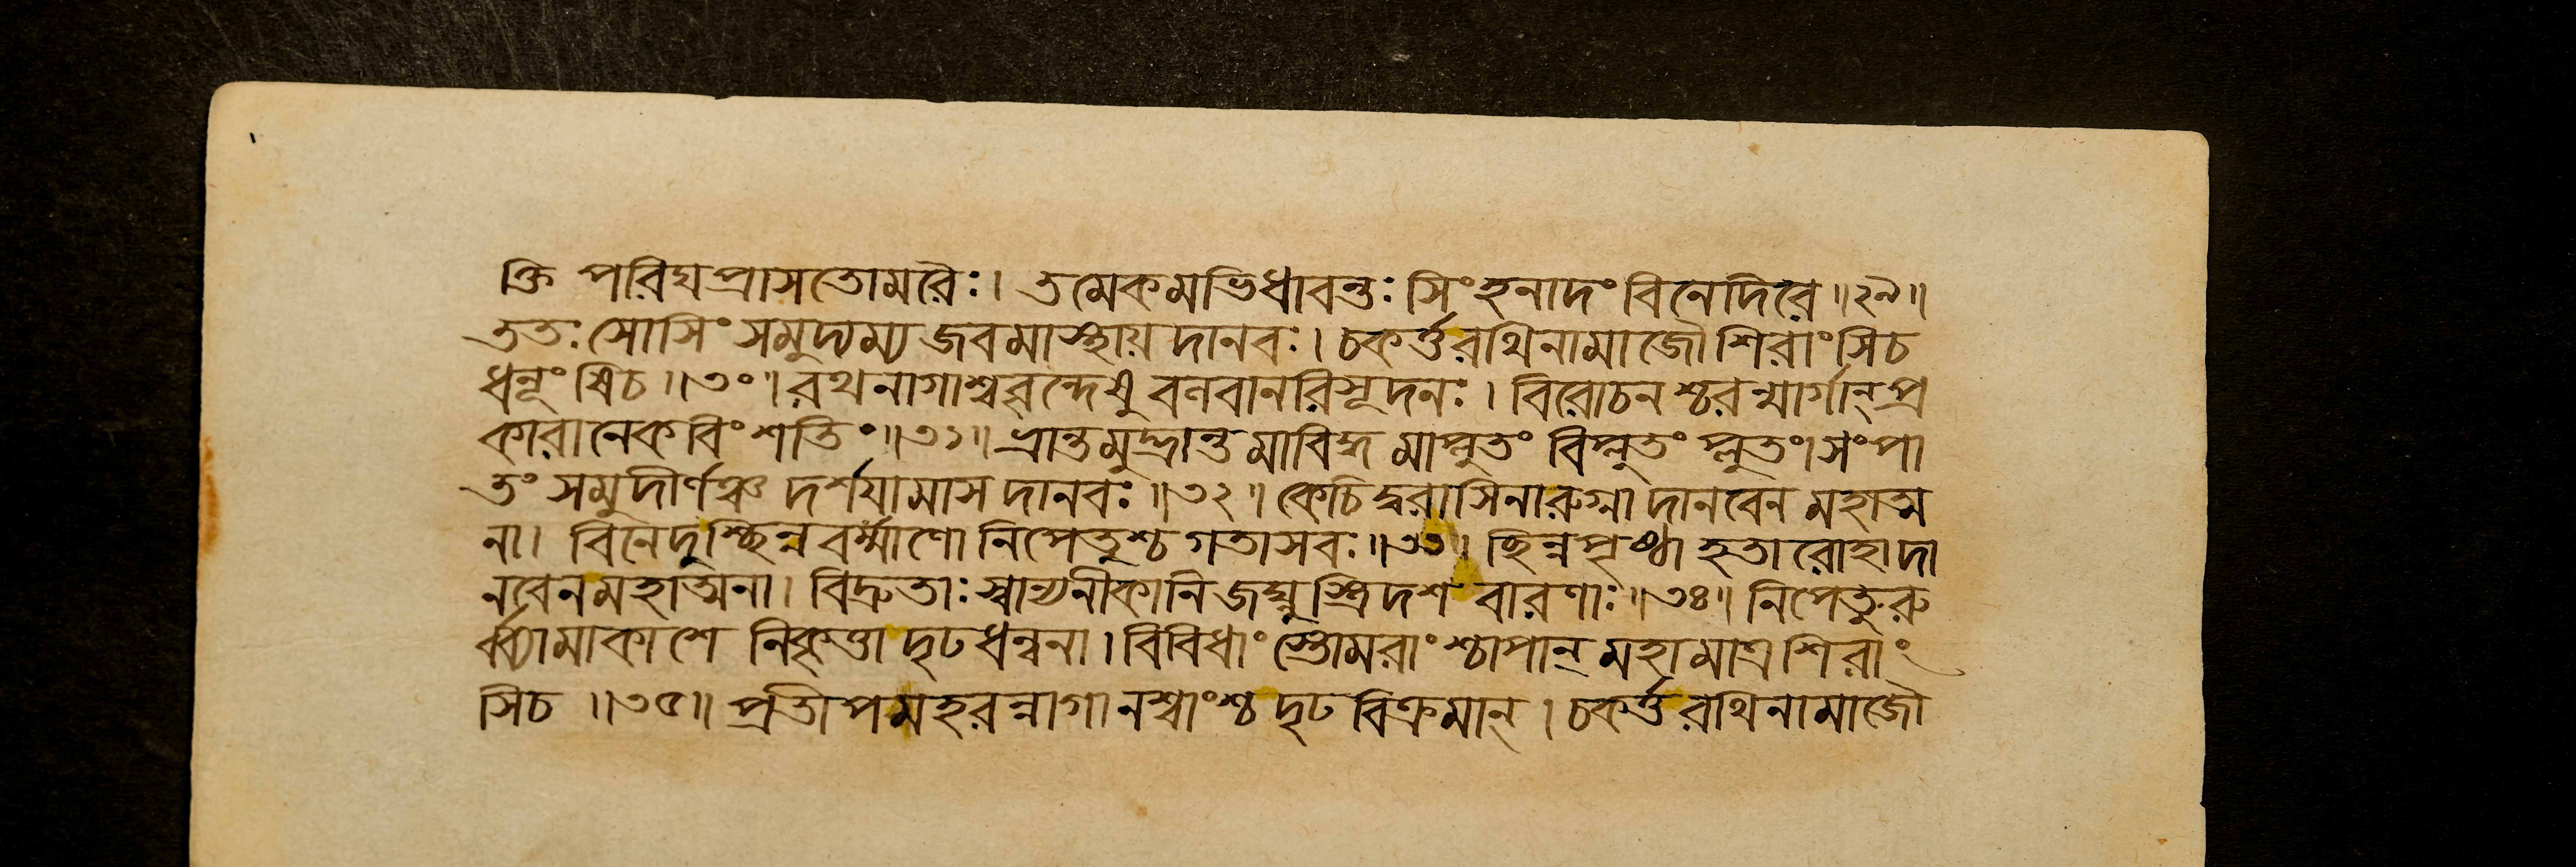 ক্তি পরিঘপ্রাসতোমরৈঃ। তমেকমভিধাবন্তঃ সিংহনাদং বিনেদিরে॥২৯॥
ততঃ সোসিং সমুদ্যম্য জবমাস্থায় দানবঃ। চকর্ত্তরথিনামাজৌ শিরাংসিচ
ধনূংষিচ॥৩০॥ রথনাগাশ্ববৃন্দেষু বণবানরিসূদনঃ। বিরোচনশ্চরন্মার্গান্প্র
কারানেকবিংশতিং॥৩১॥ ভ্রান্তমুদ্ভ্রান্তমাবিদ্ধমাপ্লুতং বিপ্লুতং প্লুতং। সংপা
তং সমুদীর্ণঞ্চ দর্শযামাস দানবঃ॥৩২॥ কেচিদ্বরাসিনারুগ্না দানবেন মহাত্ম
না। বিনেদুশ্ছিন্নবর্ম্মাণো নিপেতুশ্চ গতাসবঃ॥৩৩॥ ছিন্নপৃষ্ঠা হতারোহা দা
নবেনমহাত্মনা। বিদ্রুতাঃ স্বান্যনীকানি জঘ্নুস্ত্রিদশ বারণাঃ॥৩৪॥ নিপেতুরু
র্ব্ব্যামাকাশে নিকৃত্তা দৃঢধন্বনা। বিবিধাংস্তোমরাংশ্চাপান্ মহামাত্রশিরাং
সিচ॥৩৫॥ প্রতীপমহরন্নাগানশ্বাংশ্চ দৃঢ বিক্রমান্। চকর্ত্ত রথিনামাজৌ